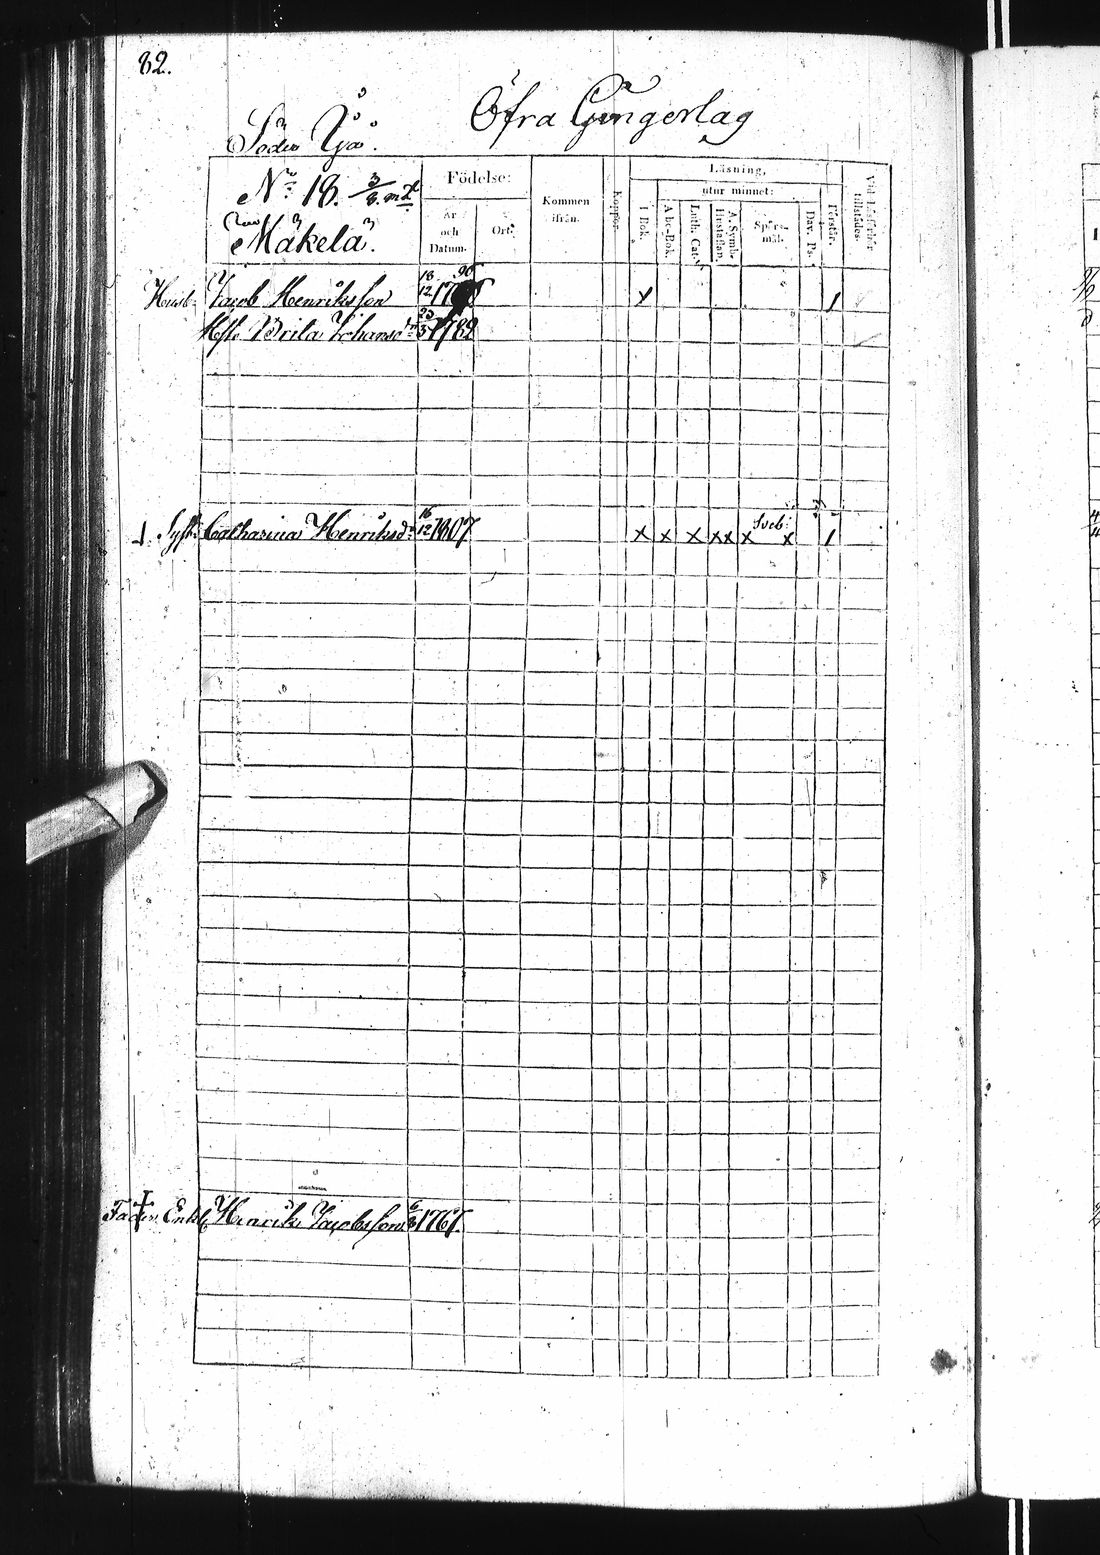 82.
Öfra Gungerlag
Söder Yjo.
No 18. 3/8 mtl
Mäkelä.
Födelse:
År och Datum.
Ort.
Kommen ifrån.
Koppor.
Läsning,
utur minnet:
I Bok.
Abc-Bok.
Luth. Cat.
A. Symb.
Hustaflan.
Spörs-mål.
Dav. Ps.
Förstår.
Vid Läsförhör tillstädes.
Husb. Jacob Henriksson 18/12 1796 x 1
Hst. Brita Johansdr 23/3 1782
Syst. Catharina Henriksdr 16/12 1807 x x x x x x Sveb: x 1
Fader, Enkl. Henrik Jacobsson 6/8 1767.